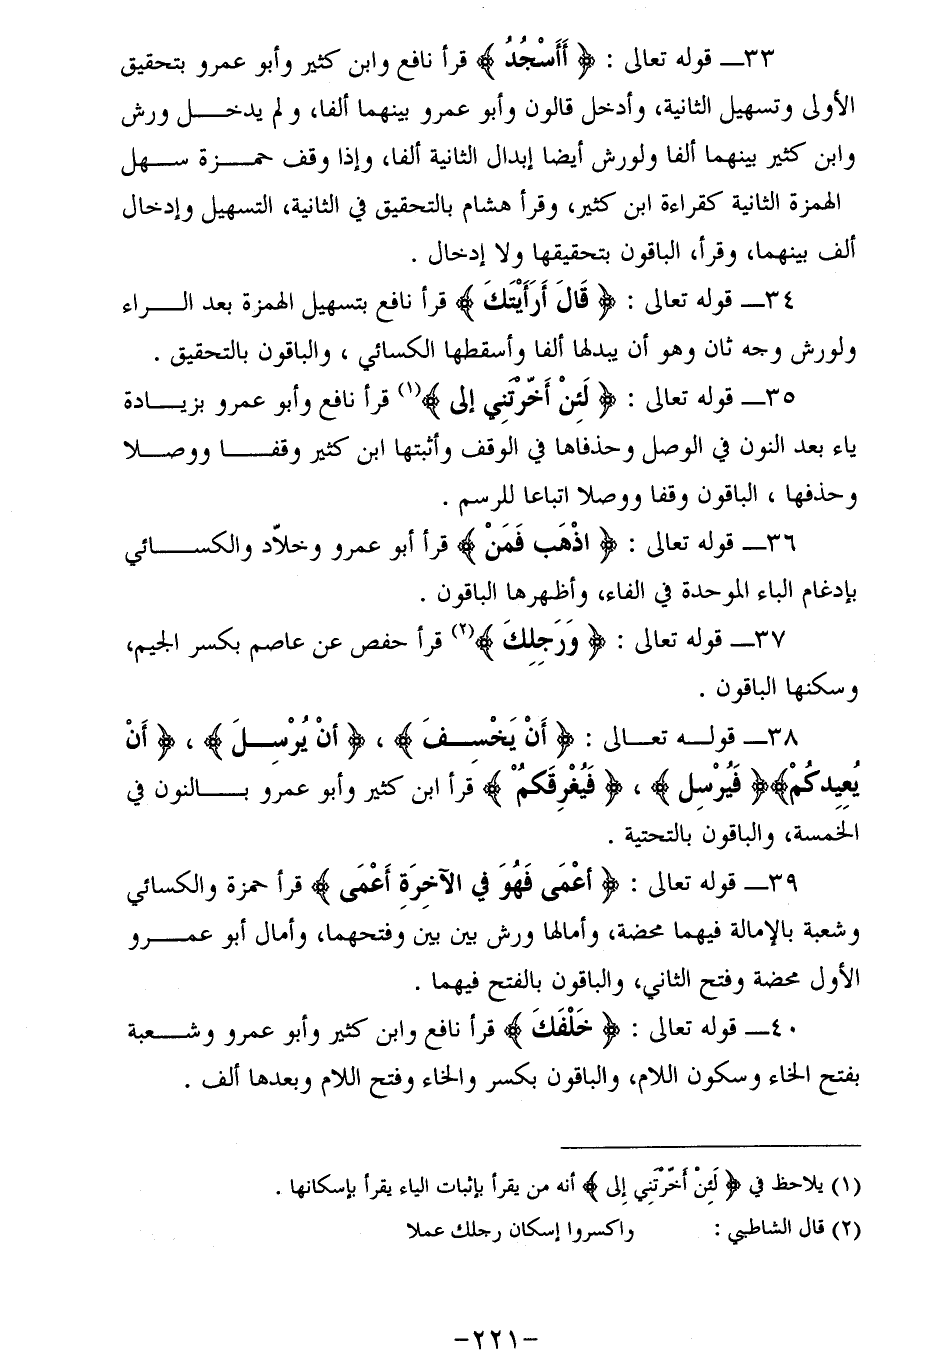 ٣٣ــ قوله تعالى : ﴿ أَأَسْجُدُ ﴾ قرأ نافع وابن كثير وأبو عمرو بتحقيق
الأولى وتسهيل الثانية، وأدخل قالون وأبو عمرو بينهما ألفا، ولم يدخــــل ورش
وابن كثير بينهما ألفا ولورش أيضا إبدال الثانية ألفا، وإذا وقف حمـــزة ســـهل
الهمزة الثانية كقراءة ابن كثير، وقرأ هشام بالتحقيق في الثانية، التسهيل وإدخال
ألف بينهما، وقرأ، الباقون بتحقيقها ولا إدخال .
٣٤ــ قوله تعالى : ﴿ قَالَ أَرَأَيْتَكَ ﴾ قرأ نافع بتسهيل الهمزة بعد الـــراء
ولورش وجه ثان وهو أن يبدلها ألفا وأسقطها الكسائي ، والباقون بالتحقيق .
٣٥ــ قوله تعالى : ﴿ لَئِنْ أَخَّرْتَنِي إلى ﴾(١) قرأ نافع وأبو عمرو بزيـــادة
ياء بعد النون في الوصل وحذفاها في الوقف وأثبتها ابن كثير وقفـــا ووصـــلا
وحذفها ، الباقون وقفا ووصلا اتباعا للرسم .
٣٦ــ قوله تعالى : ﴿ اذْهَب فَمَنْ ﴾ قرأ أبو عمرو وخلاّد والكســـائي
بإدغام الباء الموحدة في الفاء، وأظهرها الباقون .
٣٧ــ قوله تعالى : ﴿ وَرَجِلِكَ ﴾(٢) قرأ حفص عن عاصم بكسر الجيم،
وسكنها الباقون .
٣٨ــ قولـــه تعـــالى : ﴿ أَنْ يَخْسِـــفَ ﴾ ، ﴿ أنْ يُرْسِـــلَ ﴾ ، ﴿ أَنْ
يُعِيدكُمْ﴾﴿ فَيُرْسِل ﴾ ، ﴿ فَيُغْرِقَكمُْ ﴾ قرأ ابن كثير وأبو عمرو بـــالنون في
الخمسة، والباقون بالتحتية .
٣٩ــ قوله تعالى : ﴿ أعْمَى فَهُوَ في الآخِرَةِ أَعْمَى ﴾ قرأ حمزة والكسائي
وشعبة بالإمالة فيهما محضة، وأمالها ورش بين بين وفتحهما، وأمال أبو عمـــرو
الأول محضة وفتح الثاني، والباقون بالفتح فيهما .
٤٠ــ قوله تعالى : ﴿ خَلْفَكَ ﴾ قرأ نافع وابن كثير وأبو عمرو وشـــعبة
بفتح الخاء وسكون اللام، والباقون بكسر والخاء وفتح اللام وبعدها ألف .
(١) يلاحظ في ﴿ لَئِنْ أَخَّرْتَنِي إلى ﴾ أنه من يقرأ بإثبات الياء يقرأ بإسكانها .
(٢) قال الشاطبي : واكسروا إسكان رجلك عملا
-٢٢١-